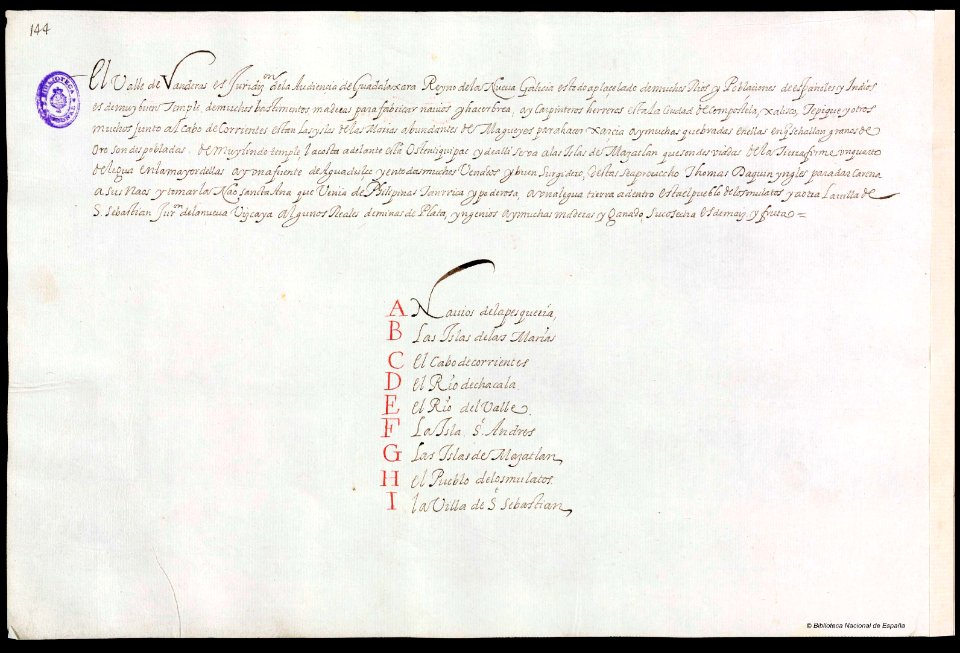 144
El Valle de Vanderas es Juridiⁿ de la Audiencia de Guadalaxara Reyno de la Nueva Galicia esta de aplacelado de muchos Rios y Poblaciones de españoles y Indios
es de muy buen Temple de muchos bastimentos maderas para fabricar navios y hacer brea, ay Carpinteros herreros esta La Ciudad de Compostela, xalisco, Tepique y otros
muchos junto al Cabo de Corrientes estan las yslas de las Marias abundantes de Magueyes para hacer xarcia ay muchas quebradas en ellas en q̃ se hallan granos de
Oro son despobladas. de muy lindo temple la costa adelante esta Ostentiquipac y de alli se va a las Islas de Mazatlan que son devididas de la tierra firme un quarto
de legua en la mayor dellas ay una fuente de Agua dulce y en todas muchos Venados y buen Surgidero, destas se aprovecho Thomas Daquin yngles para dar Carena
a sus Naos y tomar la Nao sancta Ana que Venia de Philipinas tan rica y poderosa, a una legua tierra adentro esta el pueblo de los mulatos y a otra La villa de
S. Sebastian Jurⁿ de la nueva Vizcaya algunos Reales de minas de Plata, yngenios ay muchas maderas y Ganado, su cosecha es de maiz y fruta =
A Navios de la pesqueria,
B Las Islas de las Marias
C el Cabo de corrientes
D el Rio de chacala
E el Rio del Valle.
F La Isla Sᵗ Andres
G Las Islas de Mazatlan,
H el Pueblo de los mulatos.
I la Villa de Sᵗ Sebastian,
© Biblioteca Nacional de España